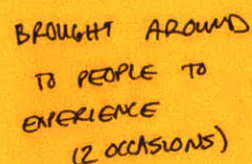 BROUGHT AROUND
TO PEOPLE TO
EXPERIENCE
(2 OCCASIONS)